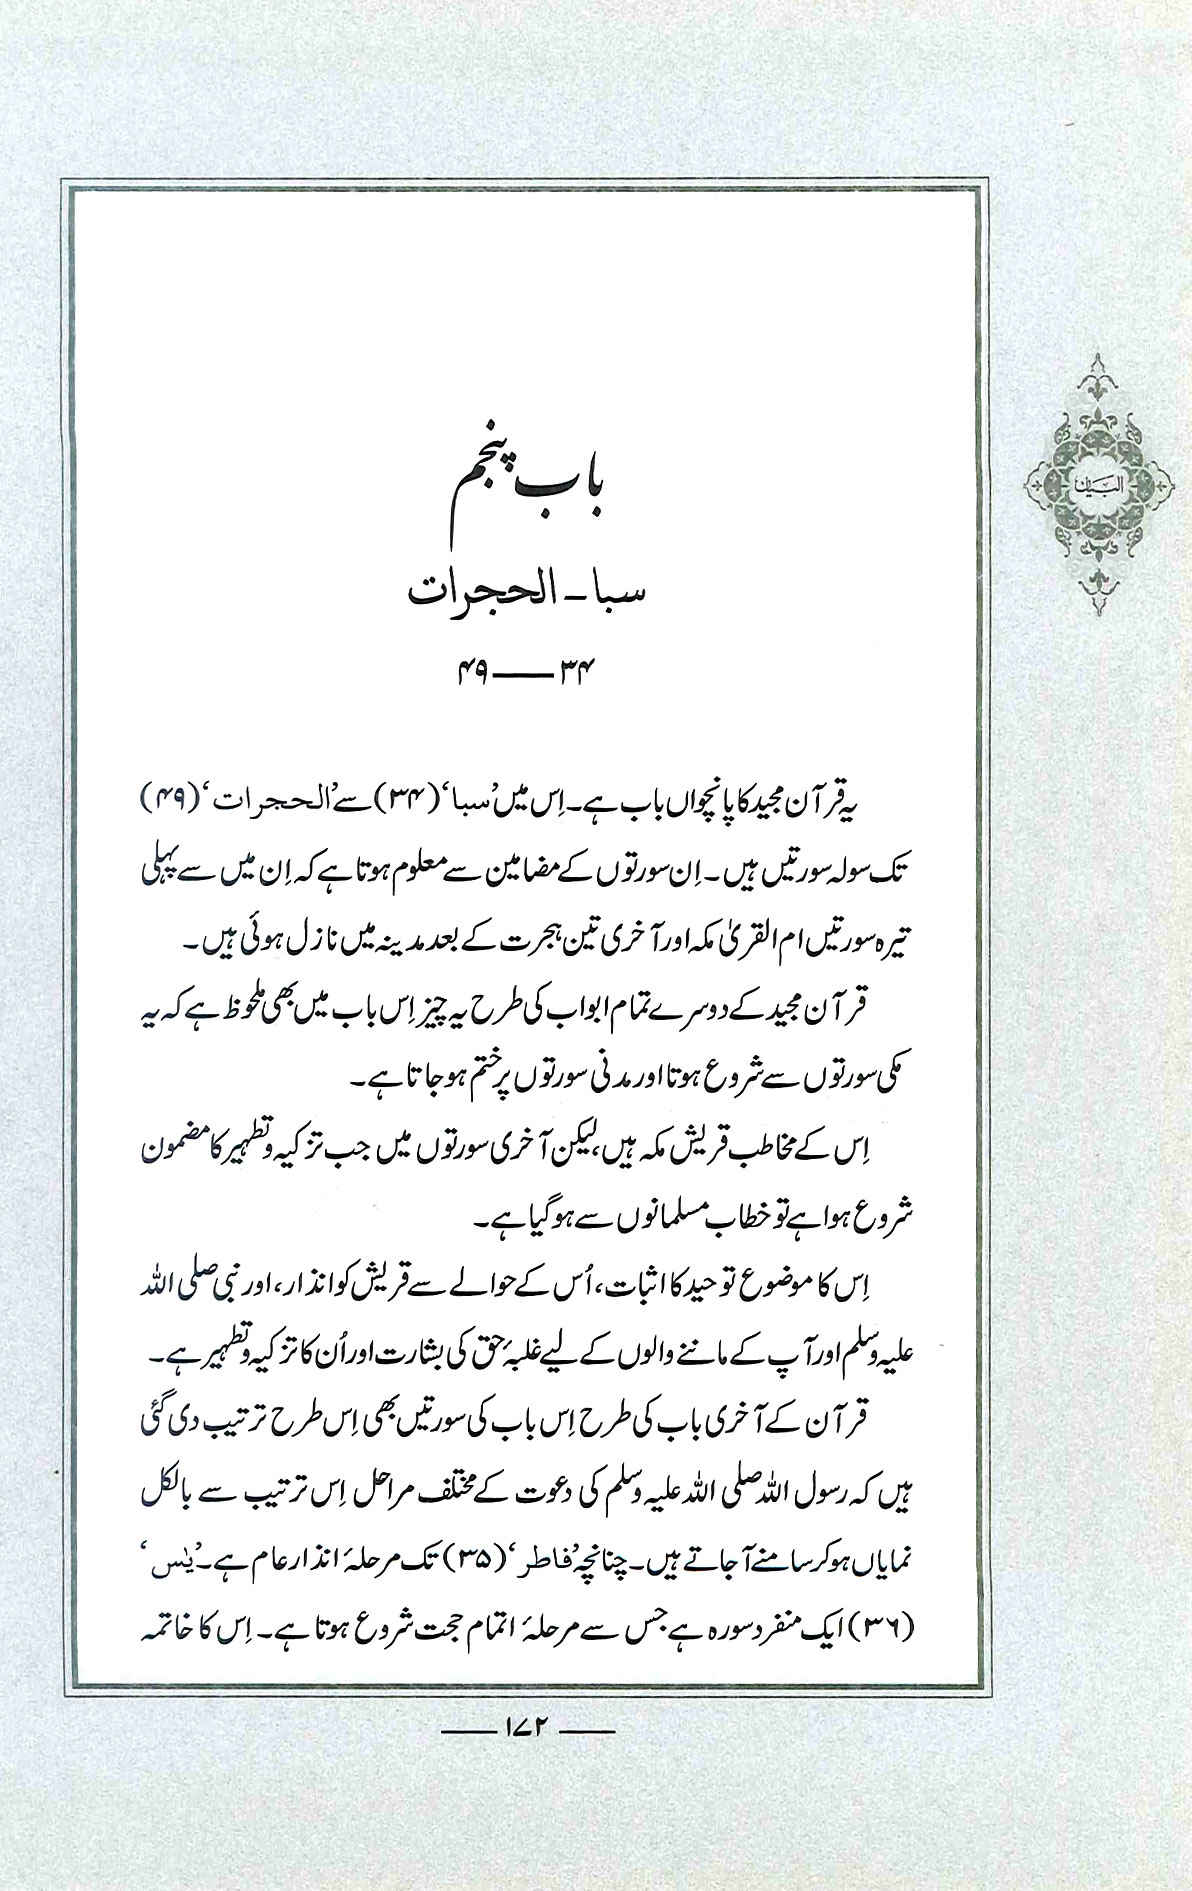 باب پنجم
سبا ـ الحجرات
۳۴ —— ۴۹
البیان
یہ قرآن مجید کا پانچواں باب ہے۔ اِس میں ’سبا‘ (۳۴) سے ’الحجرات‘ (۴۹)
تک سولہ سورتیں ہیں۔ اِن سورتوں کے مضامین سے معلوم ہوتا ہے کہ اِن میں سے پہلی
تیرہ سورتیں ام القریٰ مکہ اور آخری تین ہجرت کے بعد مدینہ میں نازل ہوئی ہیں۔
قرآن مجید کے دوسرے تمام ابواب کی طرح یہ چیز اِس باب میں بھی ملحوظ ہے کہ یہ
مکی سورتوں سے شروع ہوتا اور مدنی سورتوں پر ختم ہو جاتا ہے۔
اِس کے مخاطب قریش مکہ ہیں، لیکن آخری سورتوں میں جب تزکیہ و تطہیر کا مضمون
شروع ہوا ہے تو خطاب مسلمانوں سے ہو گیا ہے۔
اِس کا موضوع توحید کا اثبات، اُس کے حوالے سے قریش کو انذار، اور نبی صلی اللہ
علیہ وسلم اور آپ کے ماننے والوں کے لیے غلبۂ حق کی بشارت اور اُن کا تزکیہ و تطہیر ہے۔
قرآن کے آخری باب کی طرح اِس باب کی سورتیں بھی اِس طرح ترتیب دی گئی
ہیں کہ رسول اللہ صلی اللہ علیہ وسلم کی دعوت کے مختلف مراحل اِس ترتیب سے بالکل
نمایاں ہو کر سامنے آ جاتے ہیں۔ چنانچہ ’فاطر‘ (۳۵) تک مرحلۂ انذار عام ہے۔ ’یٰس‘
(۳۶) ایک منفرد سورہ ہے جس سے مرحلۂ اتمام حجت شروع ہوتا ہے۔ اِس کا خاتمہ
—— ۱۷۲ ——